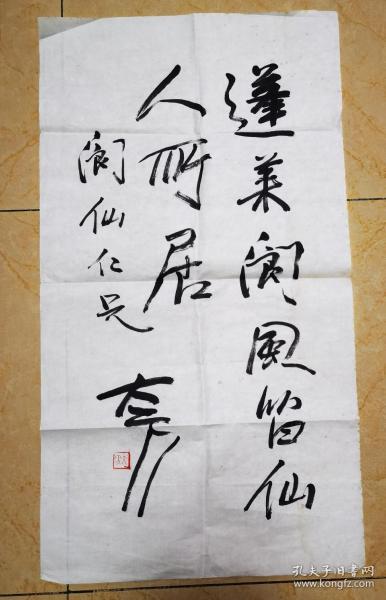 蓬莱阆风皆仙
人所居
阆仙仁兄
孔夫子旧书网
www.kongfz.com